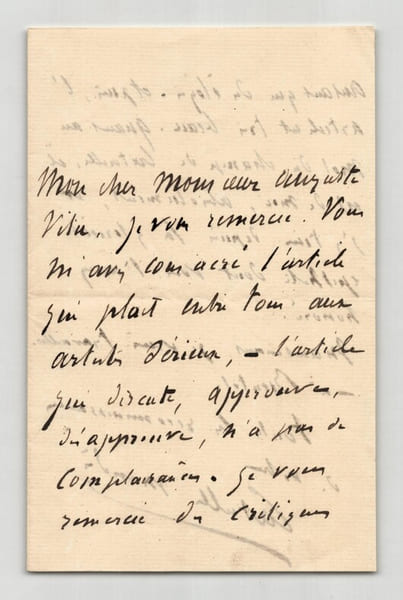 Mon cher Monsieur Auguste
Vitu. Je vous remercie. Vous
m'avez consacré l'article
qui plait entre tous aux
artistes sérieux, – l'article
qui discute, approuve,
désapprouve, n'a pas de
complaisances. Je vous
remercie des critiques